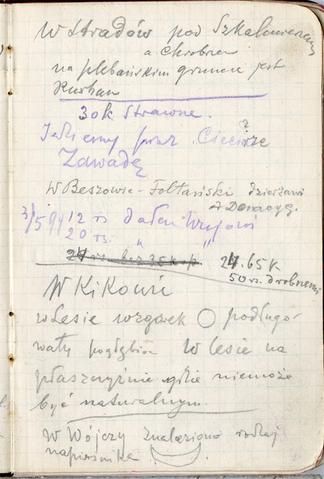 W Stradów pod Szkalmierzem
a Chrobrzem
na plebańskim gruncie jest
Kurhan
30 k strawne.
Jedziemy przez Cieciórze ?
Zawadę
W Beszowie - Foltański dzierżawi
20 rs. " "
24. 65 K
50 rs. drobnemi
W Kikowie
w lesie wzgórek ○ podługow
wały pogłębia w lesie na
płaszczyźnie gdzie niemoże
być naturalnym.
W Wójczy znaleziono rodzaj
napierśnika